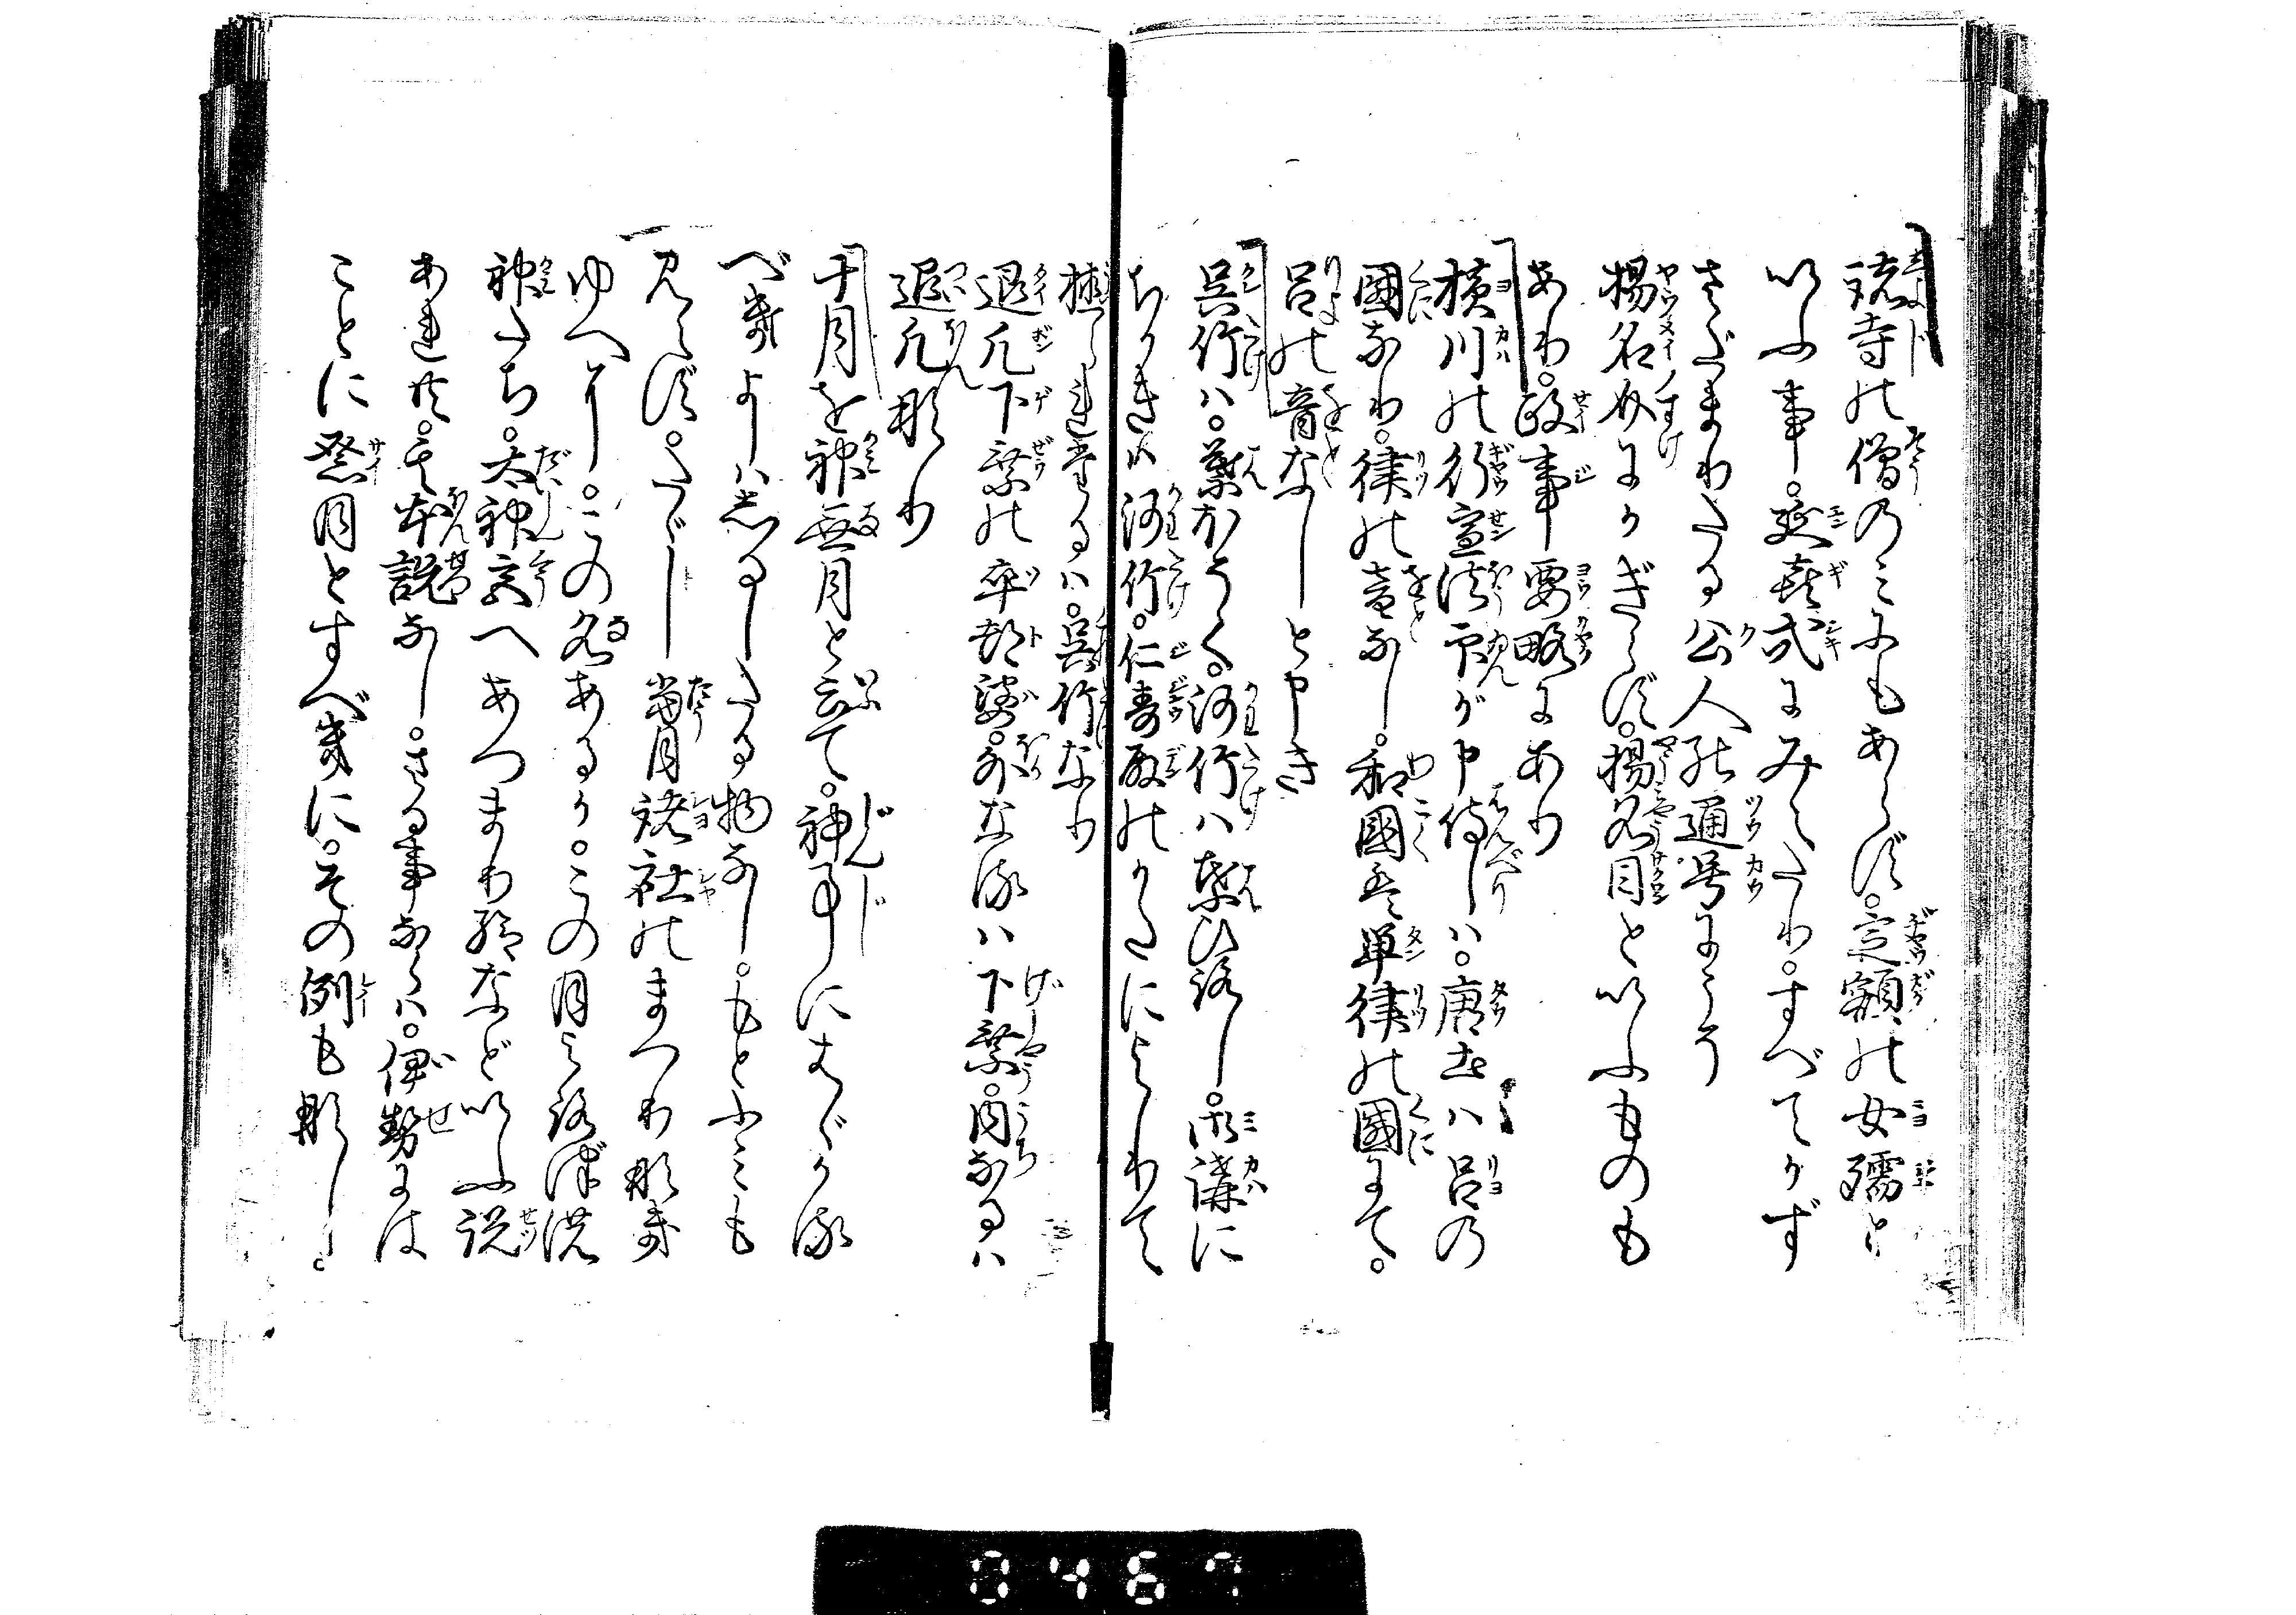 諸寺の僧のみにもあらず。定額の女孺と
いふ事。延喜式にみえたり。すべてかず
さだまりたる公人の通号にこそ
揚名介にかぎらず。揚名目といふものも
あり。政事要略にあり
横川の行宣法印が申侍しは。唐土は呂の
國なり。律の音なし。和國は単律の國にて。
呂の音なしと申き
呉竹は。葉ほそく。河竹は葉ひろし。御溝に
ちかきは河竹。仁寿殿のかたによりて
植られたるは。呉竹なり
退凡下乗の卒都婆。外なるは下乗。内なるは
退凡なり
十月を神無月と云て。神事にはゞかる
べきよしはしるしたる物なし。もとふみも
見えず。たゞし當月諸社のまつりなき
ゆへに。この名あるか。この月よろづの
神たち。太神宮へあつまり給などいふ説
あれども。其本説なし。さる事ならば。伊勢には
ことに祭月とすべきに。その例もなし。
0467